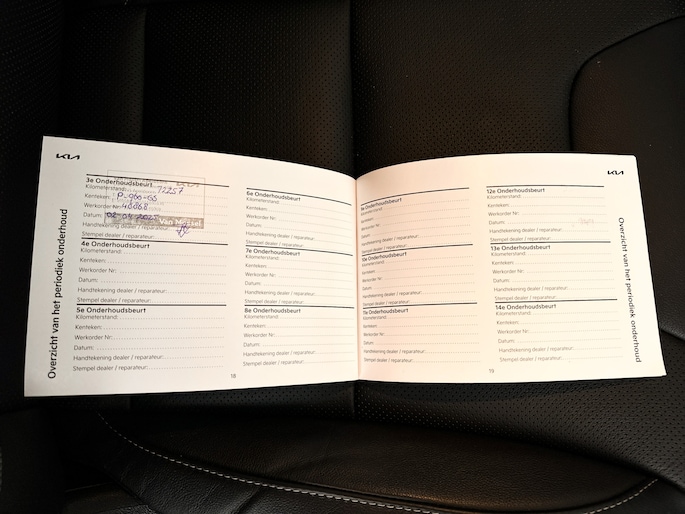 KIA
Overzicht van het periodiek onderhoud
3e Onderhoudsbeurt
Kilometerstand: 72257
Kenteken: P-960-GS
Werkorder Nr: 48068
Datum: 02-04-2025
Handtekening dealer / reparateur:
Van Mossel
Stempel dealer / reparateur:
4e Onderhoudsbeurt
Kilometerstand:
Kenteken:
Werkorder Nr:
Datum:
Handtekening dealer / reparateur:
Stempel dealer / reparateur:
5e Onderhoudsbeurt
Kilometerstand:
Kenteken:
Werkorder Nr:
Datum:
Handtekening dealer / reparateur:
Stempel dealer / reparateur:
6e Onderhoudsbeurt
Kilometerstand:
Kenteken:
Werkorder Nr:
Datum:
Handtekening dealer / reparateur:
Stempel dealer / reparateur:
7e Onderhoudsbeurt
Kilometerstand:
Kenteken:
Werkorder Nr:
Datum:
Handtekening dealer / reparateur:
Stempel dealer / reparateur:
8e Onderhoudsbeurt
Kilometerstand:
Kenteken:
Werkorder Nr:
Datum:
Handtekening dealer / reparateur:
Stempel dealer / reparateur:
18
9e Onderhoudsbeurt
Kilometerstand:
Kenteken:
Werkorder Nr:
Datum:
Handtekening dealer / reparateur:
Stempel dealer / reparateur:
10e Onderhoudsbeurt
Kilometerstand:
Kenteken:
Werkorder Nr:
Datum:
Handtekening dealer / reparateur:
Stempel dealer / reparateur:
11e Onderhoudsbeurt
Kilometerstand:
Kenteken:
Werkorder Nr:
Datum:
Handtekening dealer / reparateur:
Stempel dealer / reparateur:
KIA
12e Onderhoudsbeurt
Kilometerstand:
Kenteken:
Werkorder Nr:
Datum:
Handtekening dealer / reparateur:
Stempel dealer / reparateur:
13e Onderhoudsbeurt
Kilometerstand:
Kenteken:
Werkorder Nr:
Datum:
Handtekening dealer / reparateur:
Stempel dealer / reparateur:
14e Onderhoudsbeurt
Kilometerstand:
Kenteken:
Werkorder Nr:
Datum:
Handtekening dealer / reparateur:
Stempel dealer / reparateur:
19
Overzicht van het periodiek onderhoud